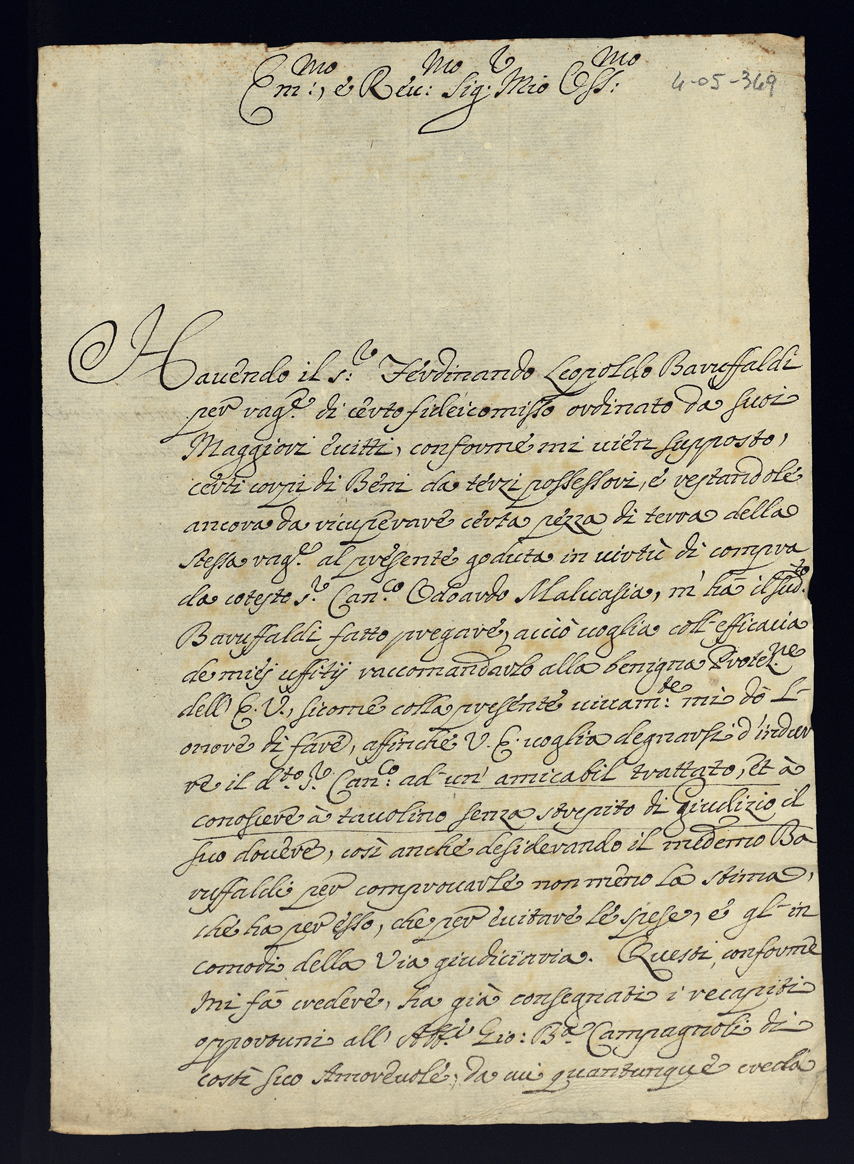 Em:mo, e Reu:mo Sig:r Mio Oss:mo
4-05-369
Havendo il s:r Ferdinando Leopoldo Baruffaldi
per rag:e di certo fideicomisso ordinato da suoi
Maggiori evitti, conforme mi vien supposto,
certi corpi di Beni da terzi possessori, e restandole
ancora da ricuperare certa pezza di terra della
stessa rag:e al presente goduta in virtù di compra
da cotesto s:r Can:co Odoardo Malvasia, m'hà il sud:to
Baruffaldi fatto pregare, acciò voglia coll'efficacia
de miej uffitij raccomandarlo alla benigna Protez:ne
dell'E. V., sicome colla presente vivam:te mi dò l'-
onore di fare, affinche V. E. voglia degnarsi d'indur
re il d:to S:r Can:co ad un' amicabil trattato, et à
conoscere à tavolino senza strepito di giudizio il
suo dovere, così anche desiderando il medemo Ba
ruffaldi per comprovarle non meno la stima,
che ha per esso, che per evitare le spese, e gl'-in
comodi della Via giudiciaria. Questi, conforme
mi fà credere, ha già consegnati i recapiti
opportuni all' Gio: B:a Campagnoli di
costì suo Amorevole, da cui quantunque creda